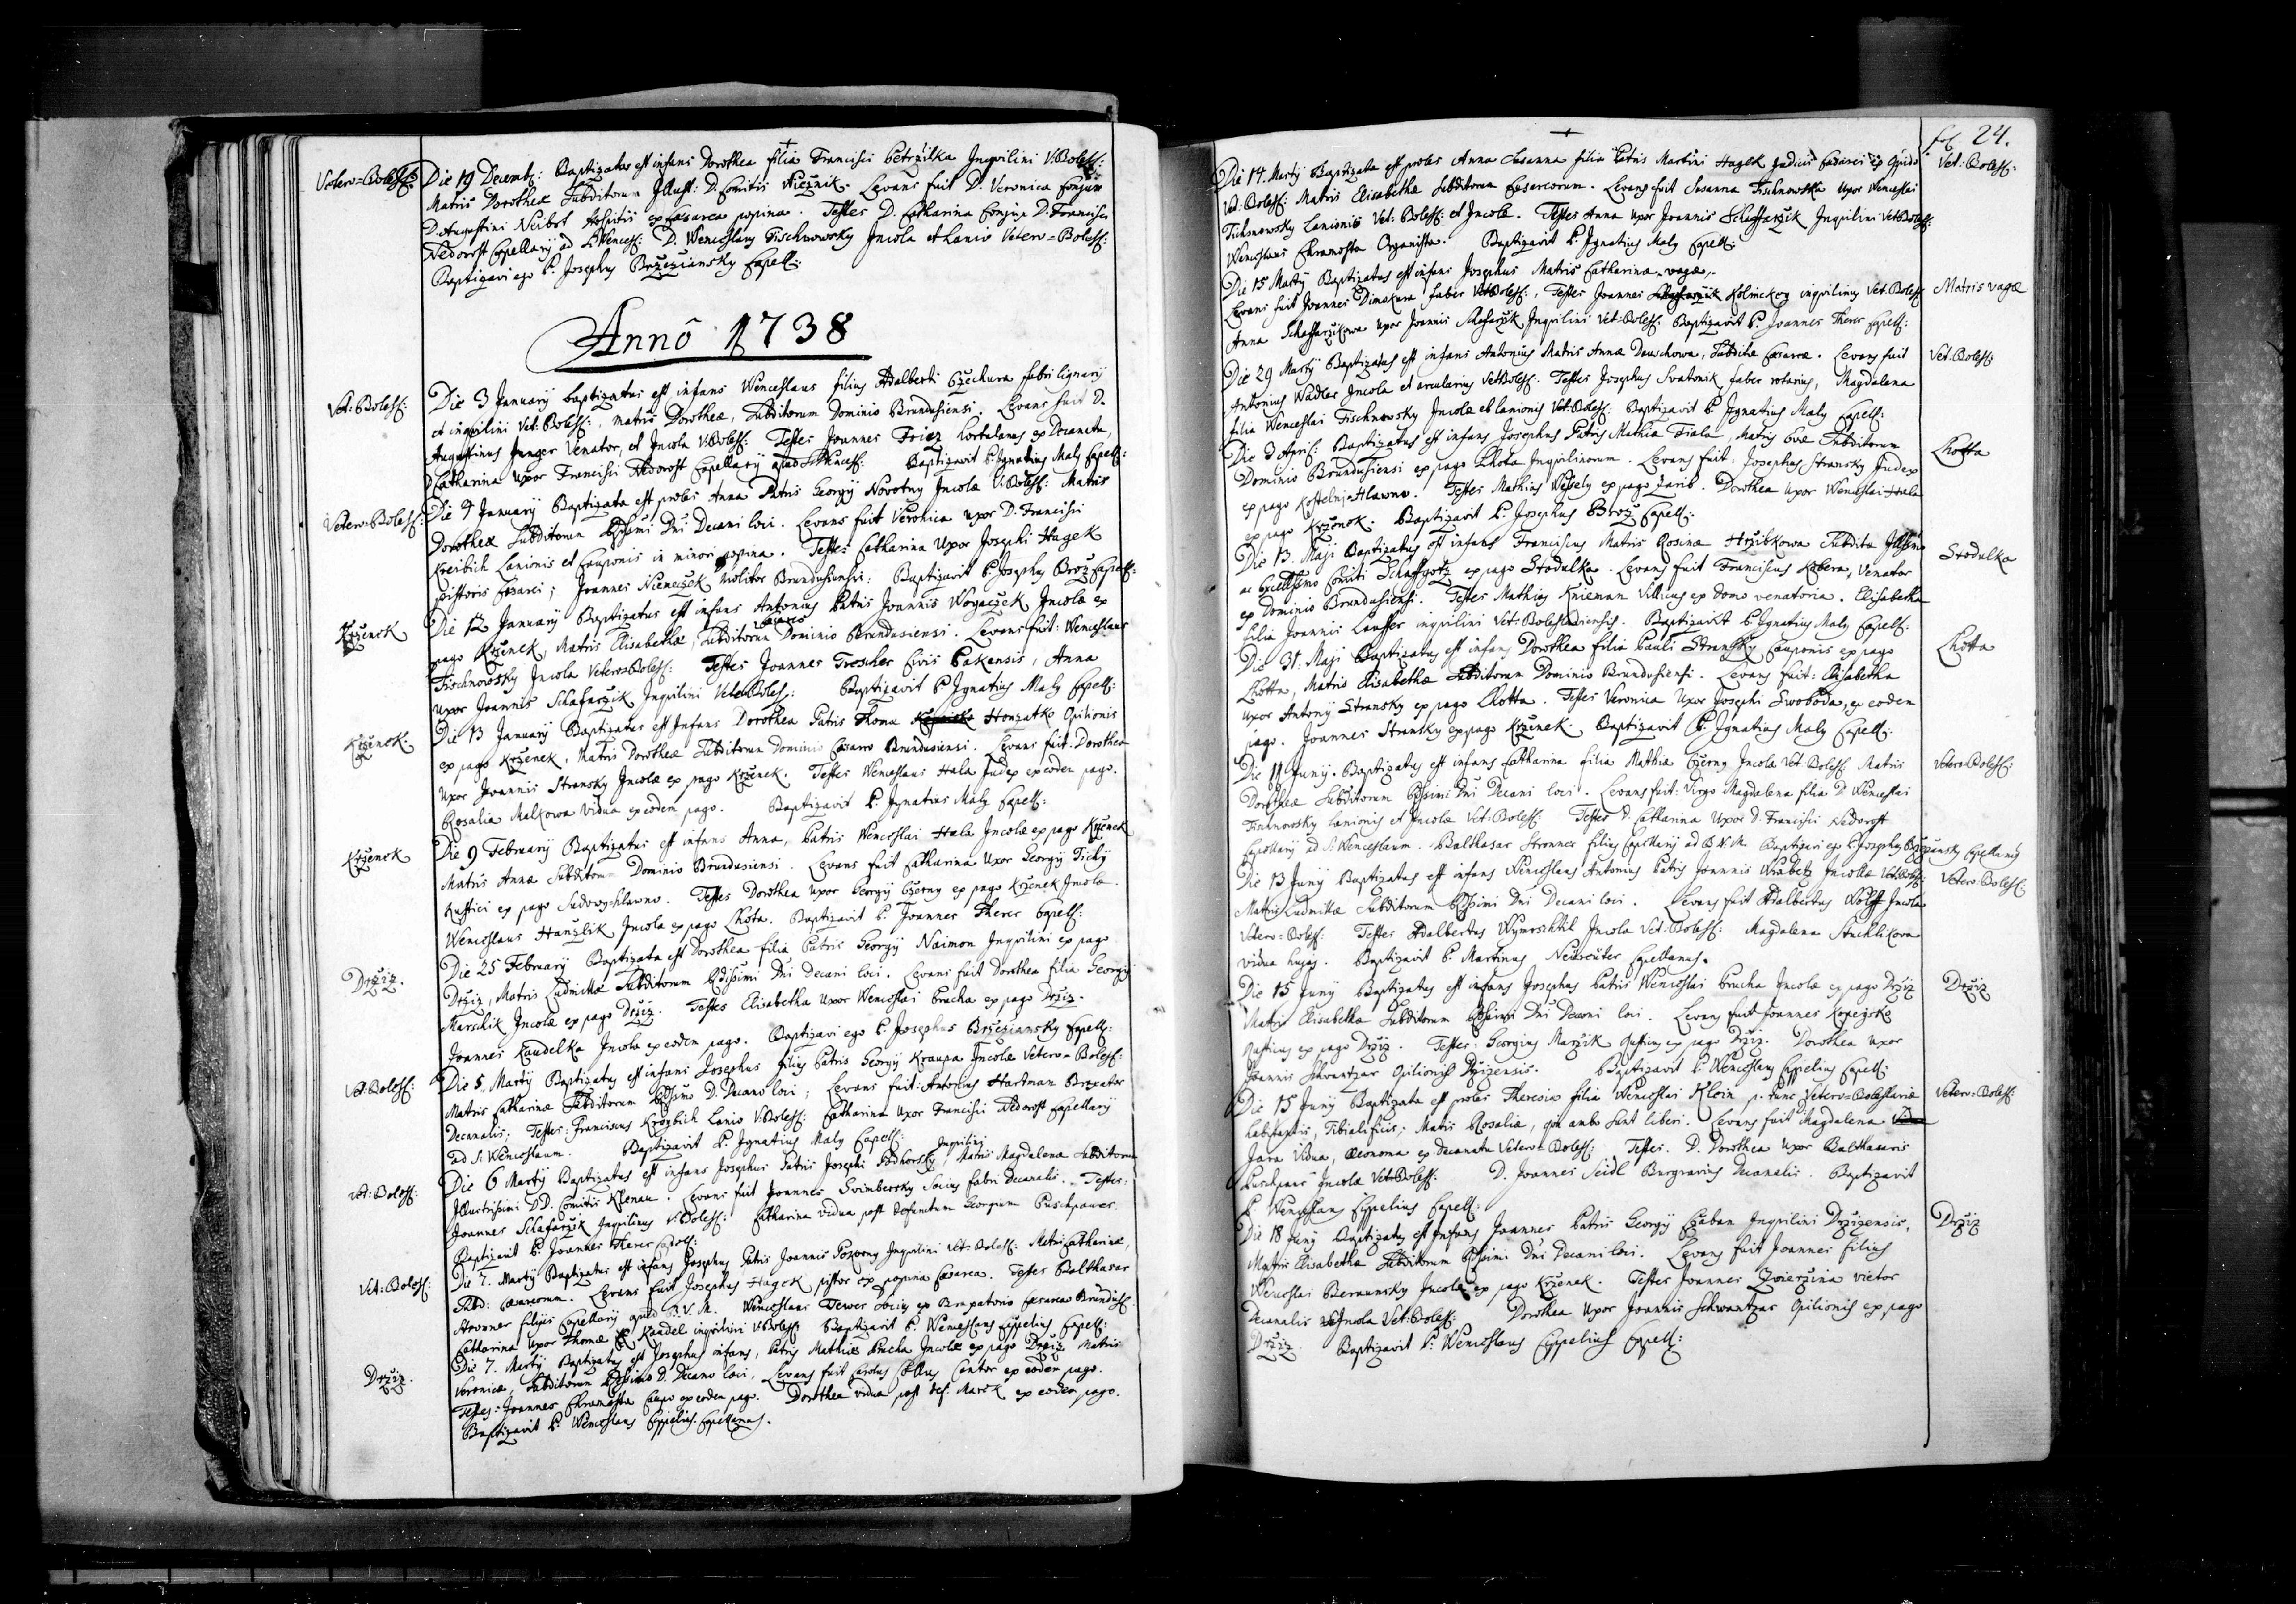 Vetero=Bolesl:
Die 19 Decemb: Baptizatus est infans Dorothea filia Francisci Petrzilka Inquilini V:Bolesl:
Matris Dorotheæ Subditorum Illust: D. Comitis Wieznik. Levans fuit D. Veronica Conjunx
D. Augustini Neibst hospitis ex Cæsarea popina. Testes D. Catharina Conjunx D. Francisci
Nedorost Capellarij ad S. Wencesl: D. Wenceslaus Tischnowsky Incola et Lanio Vetero=Bolesl:
Baptizavi ego P. Josephus Brzeziansky Capell:
Annô 1738
Vet:Bolesl:
Die 3 January baptizatus est infans Wenceslaus filius Adalberti Czechura fabri lignarij
et inquilini Vet:Bolesl:, matris Dorotheæ, Subditorum Dominio Brundusiensi. Levans fuit D.
Augustinus Junger Venator, et Incola V:Bolesl: Testes Joannes Friez hortulanus ex Decanatu,
Catharina Uxor Francisci Nedorost Capellarij apud S: Wencesl: Baptizavit P. Ignatius Maly Capell:
Vetero=Bolesl:
Die 7 January Baptizata est proles Anna Patris Georgij Novotny Incolæ V:Bolesl: Matris
Dorotheæ Subditorum Dni Decani loci. Levans fuit Veronica Uxor D. Francisci
Kreibich Lanionis et Cauponis in minori popina. Testes Catharina Uxor Josephi Hagek
pistoris Cæsarei; Joannes Niemeczek Molitor Brundusiensis: Baptizavit P. Josephus Broz Capell:
Krzenek
Die 12 January Baptizatus est infans Antonius Patris Joannis Wogaczek Incolæ ex
pago Krzenek, Matris Elisabethæ, Subditorum Cæsareo Dominio Brundusiensi. Levans fuit: Wenceslaus
Tischnowsky Incola Vetero=Bolesl: Testes Joannes Troscher Civis Pakensis, Anna
Uxor Joannis Schafarzik Inquilini Vet:Bolesl: Baptizavit P. Ignatius Maly Capell:
Krzenek
Die 13 January Baptizatus est Infans Dorothea Patris Thomæ Honzatko Opilionis
ex pago Krzenek, Matris Dorotheæ Subditorum Dominio Cæsareo Brundusiensi. Levans fuit: Dorothea
Uxor Joannis Stransky Incolæ ex pago Krzenek. Testes Wenceslaus Hala Judex ex eodem pago.
Rosalia Malkowa Vidua ex eodem pago. Baptizavit P. Ignatius Maly Capell:
Krzenek
Die 9 February Baptizatus est infans Anna, Patris Wenceslai Hala Incolæ ex pago Krzenek
Matris Annæ Subditorum Dominio Brundusiensi Levans fuit Catharina Uxor Georgij Tichy
Rustici ex pago Sudowy-hlawno. Testes Dorothea Uxor Georgij Czerny ex pago Krzenek Incolæ.
Wenceslaus Hanzlik Incola ex pago Lhota. Baptizavit P. Joannes Therer Capell:
Drziz.
Die 25 February Baptizata est Dorothea filia Patris Georgij Naimon Inquilini ex pago
Drziz, Matris Ludmillæ Subditorum Dni Decani loci. Levans fuit Dorothea filia Georgij
Marschik Incolæ ex pago Drziz. Testes Elisabetha Uxor Wenceslai Prucha ex pago Drziz.
Joannes Kaudelka Incola ex eodem pago. Baptizavi ego P. Josephus Brzeziansky Capell:
Vet:Bolesl:
Die 5. Martij Baptizatus est infans Josephus filius Patris Georgij Kraupa Incolæ Vetero=Bolesl:
Matris Catharinæ Subditorum D. Decano loci; Levans fuit: Antonius Hartman Braxator
Decanalis; Testes: Franciscus Kreybich Lanio V:Bolesl: Catharina Uxor Francisci Nedorost Capellarij
ad S: Wenceslaum. Baptizavit P. Ignatius Maly Capell:
Vet:Bolesl:
Die 6 Martij Baptizatus est infans Josephus Patris Josephi Podhorsky Inquilini, Matris Magdalenæ Subditorum
Illustrissimi DD. Comitis Klenau. Levans fuit Joannes Svimbersky Socius fabri Decanalis. Testes:
Joannes Schafarzik Inquilinus V:Bolesl: Catharina vidua post defunctum Georgium Puschpauer
Baptizavit P. Joannes Therer Capell:
Vet:Bolesl:
Die 7. Martij Baptizatus est infans Josephus Patris Joannis Pozorny Inquilini Vet:Bolesl: Matris Catharinæ,
Subd: Cæsareorum. Levans fuit Josephus Hagek pistor ex popina Cæsarea. Testes Balthasar
Stronner filius Capellarij apud B.V.M. Wenceslaus Ferver Socius ex Braxatorio Cæsareo Brundus:
Catharina Uxor Thomæ Kandel inquilini V:Bolesl: Baptizavit P. Wenceslaus Cippelius Capell:
Drziz.
Die 7. Martij Baptizatus est Josephus infans, Patris Mathiæ Prucha Incolæ ex pago Drziz Matris
Veronicæ, Subditorum D. Decano loci, Levans fuit Carolus Cantor ex eodem pago.
Testes: Joannes Chramosta Caupo ex eodem pago. Dorothea vidua post def: Marek ex eodem pago.
Baptizavit P. Wenceslaus Cippelius Capellanus.
fol 24.
Die 14. Martij Baptizata est proles Anna Susanna filia Patris Martini Hagek Judicis Cæsarei ex oppido
Vet:Bolesl: Matris Elisabethæ Subditorum Cæsareorum. Levans fuit Susanna Tischnowska Uxor Wenceslai
Tischnowsky Lanionis Vet:Bolesl: et Incolæ. Testes Anna Uxor Joannis Schaffarzik Inquilini Vet:Bolesl:
Wenceslaus Chramosta Organista. Baptizavit P. Ignatius Maly Capell:
Vet:Bolesl:
Die 15 Martij Baptizatus est infans Josephus Matris Catharinæ vagæ.
Levans fuit Joannes Dimakura faber Vet:Bolesl:, Testes Joannes Kolinckey inquilinus Vet:Bolesl:
Anna Schaffarzikowa Uxor Joannis Schafarzik Inquilini Vet:Bolesl: Baptizavit P. Joannes Therer Capell:
Matris vagæ
Die 29 Martij Baptizatus est infans Antonius Matris Annæ Dauschowa, Subditæ Cæsareæ. Levans fuit
Antonius Wadler Incola et arcularius Vet:Bolesl: Testes Josephus Svatonik faber rotarius, Magdalena
filia Wenceslai Tischnowsky Incolæ et lanionis Vet:Bolesl: Baptizavit P. Ignatius Maly Capell:
Vet:Bolesl:
Die 3 April: Baptizatus est infans Josephus Patris Mathiæ Fiala, Matris Evæ Subditorum
Dominio Brundusiensi ex pago Lhota Inquilinorum. Levans fuit: Josephus Stransky Judex
ex pago Kostelni-Hlawno. Testes Mathias Wessely ex pago Zarib. Dorothea Uxor Wenceslai Hala
ex pago Krzenek. Baptizavit P. Josephus Broz Capell:
Lhotta
Die 13. Maji Baptizatus est infans Franciscus Matris Rosinæ Hrzibkowa Subditæ Illssmo
ac Excellssimo Comiti Schaffgotz ex pago Stodulka. Levans fuit Franciscus Lebera, Venator
ex Dominio Brundusiensi. Testes Mathias Knieman Villicus ex domo venatoria. Elisabetha
filia Joannis Lauffer inquilini Vet:Boleslaviensis. Baptizavit P. Ignatius Maly Capell:
Stodulka
Die 31. Maji Baptizatus est infans Dorothea filia Pauli Stransky Cauponis ex pago
Lhotta, Matris Elisabethæ Subditorum Dominio Brundusiensi. Levans fuit: Elisabetha
Uxor Antonij Stransky ex pago Lhotta. Testes Veronica Uxor Josephi Swoboda, ex eodem
pago. Joannes Stransky ex pago Krzenek. Baptizavit P. Ignatius Maly Capell:
Lhotta
Die 11 Juny. Baptizatus est infans Catharina filia Mathiæ Czerny Incolæ Vet:Bolesl: Matris
Dorotheæ Subditorum Dni Decani loci. Levans fuit: Virgo Magdalena filia D. Wenceslai
Tischnowsky Lanionis et Incolæ Vet:Bolesl: Testes D. Catharina Uxor D. Francisci Nedorost
Capellarij ad S. Wenceslaum. Balthasar Stronner filius Capellarij ad B.V.M. Baptizavi ego P. Josephus Brzeziansky Capellanus
Vetero=Bolesl:
Die 13 Juny Baptizatus est infans Wenceslaus Antonius Patris Joannis Wrabetz Incolæ Vet:Bolesl:
Matris Ludmillæ Subditorum Dni Decani loci. Levans fuit Adalbertus Wolff Incola
Vetero=Bolesl: Testes Adalbertus Wymrschtil Incola Vet:Bolesl: Magdalena Suchlikova
vidua hujas. Baptizavit P. Martinus Neureüter Capellanus.
Vetero:Bolesl:
Die 15 Juny Baptizatus est infans Josephus Patris Wenceslai Prucha Incolæ ex pago Drziz
Matris Elisabethæ Subditorum Dni Decani loci. Levans fuit Joannes Kopezsko
Rusticus ex pago Drziz. Testes: Georgius Marzik Rusticus ex pago Drziz. Dorothea Uxor
Joannis Schwantzar Opilionis Drzizensis. Baptizavit P. Wenceslaus Cippelius Capell:
Drziz
Die 15 Juny Baptizata est proles Theresia filia Wenceslai Klein p. tunc Vetero=Boleslaviæ
habitantis, Tibialificis, Matris Rosaliæ, qui ambo sunt liberi. Levans fuit Magdalena
Jara Vidua, œconoma ex decanatu Vetero=Bolesl: Testes. D. Dorothea Uxor Balthasaris
Puschpaur Incolæ Vet:Bolesl: D. Joannes Seidl Burgravius Decanalis. Baptizavit
P. Wenceslaus Cippelius Capell:
Vetero:Bolesl:
Die 18 Juny Baptizatus est Infans Joannes Patris Georgij Czaban Inquilini Drzizensis,
Matris Elisabethæ Subditorum Dni Decani loci. Levans fuit Joannes filius
Wenceslai Beraunsky Incolæ ex pago Krzenek. Testes Joannes Zwierzina vietor
Decanalis Incola Vet:Bolesl: Dorothea Uxor Joannis Schwantzar Opilionis ex pago
Drziz. Baptizavit P. Wenceslaus Cippelius Capell:
Drziz